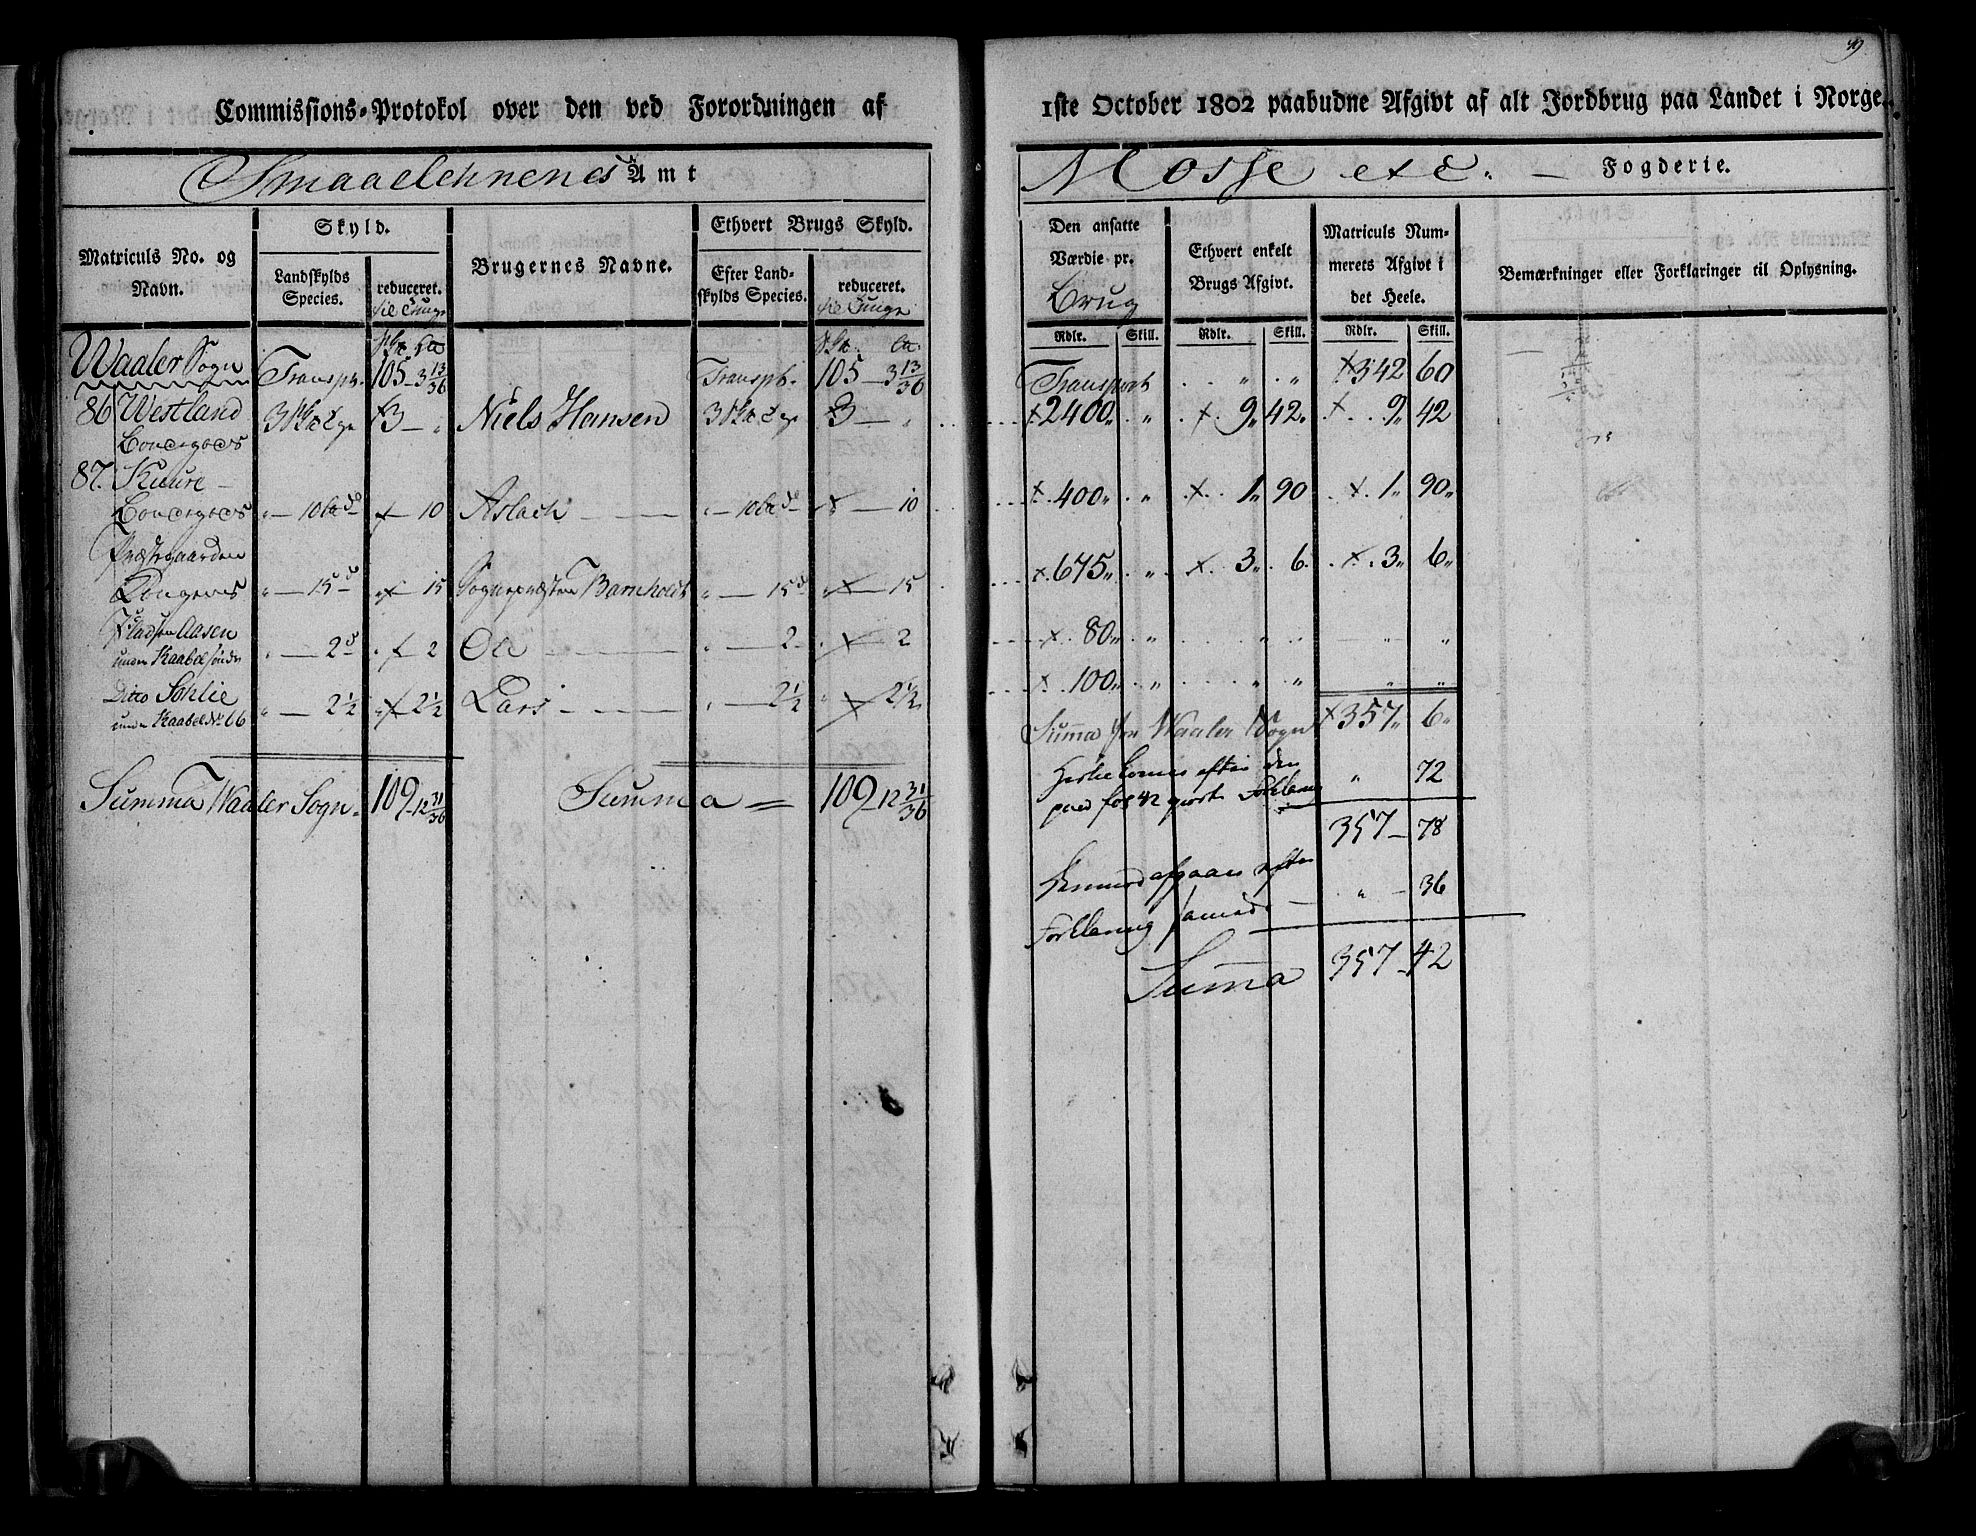 49
Commissions-Protokol over den ved Forordningen af 1ste October 1802 paabudne Afgivt af alt Jordbrug paa Landet i Norge.
Smaalehnenes Amt
Mosse etc. Fogderie.
Matriculs No. og Navn.
Skyld.
Landskylds Species.
reduceret. til Tunge
Brugernes Navne.
Ethvert Brugs Skyld.
Efter Landskylds Species.
reduceret. til Tunge
Den ansatte Værdie pr. Brug
Ethvert enkelt Brugs Afgivt.
Matriculs Nummerets Afgivt i det Heele.
Bemærkninger eller Forklaringer til Oplysning.
Rdlr. Skill. Rdlr. Skill. Rdlr. Skill.
Waaler Sogn Transpt. 105 - 3 13/36 Transpt. 105 - 3 13/36 Transport " " 342 60
86 Westland 3 3 - " Niels Hansen 3 3 - " 2400 " 9 42 9 42
Bondegods
87. Kuure
Bondegods " - 10 10 Aslach " - 10 10 400 " 1 90 1 90
Præstegaarden
" - 15 15 Sognepræsten 15 15 675 " 3 6 3 6
Pladsen Aasen
under Kaabel søndre " - 2 2 Ole " - 2 2 80 " " " " "
Ditto Sohlie
under Kaabel No. 66 " - 2½ 2½ Lars " - 2½ 2½ 100 " " " " "
Summa for Waaler Sogn 357 6
efter den
fol 42 giorte Forklaring " 72
Summa Waaler Sogn 109 - 12 31/36 Summa = 109 - 12 31/36
357 - 78
afgaaer efter
Forklaring " - 36
Summa 357 - 42